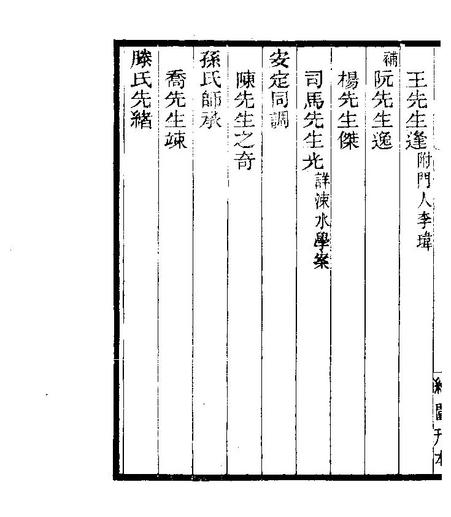 王先生逢附門人李瑋
補阮先生逸
楊先生傑
司馬先生光詳涑水學案
安定同調
陳先生之奇
孫氏師承
喬先生竦
滕氏先緒